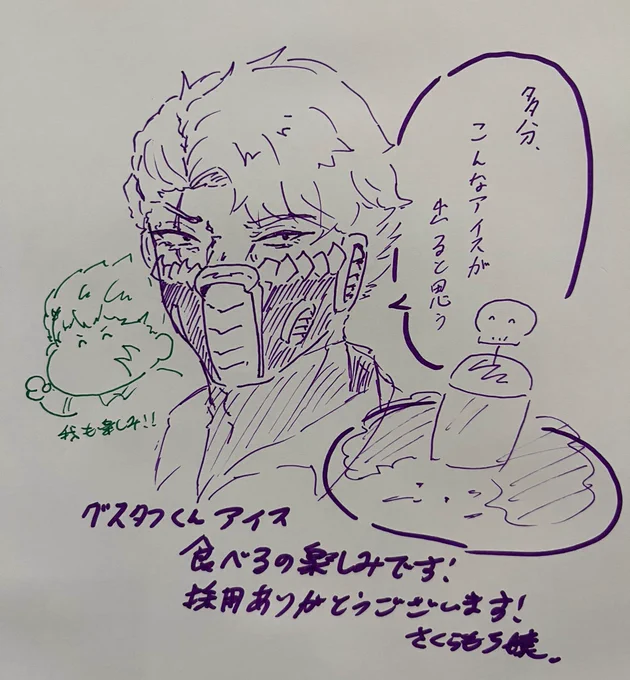 多分、
こんなアイスが
出ると思う
我も楽しみ!!
グスタフくん アイス
食べるの楽しみです!
採用ありがとうございます!
さくらもち